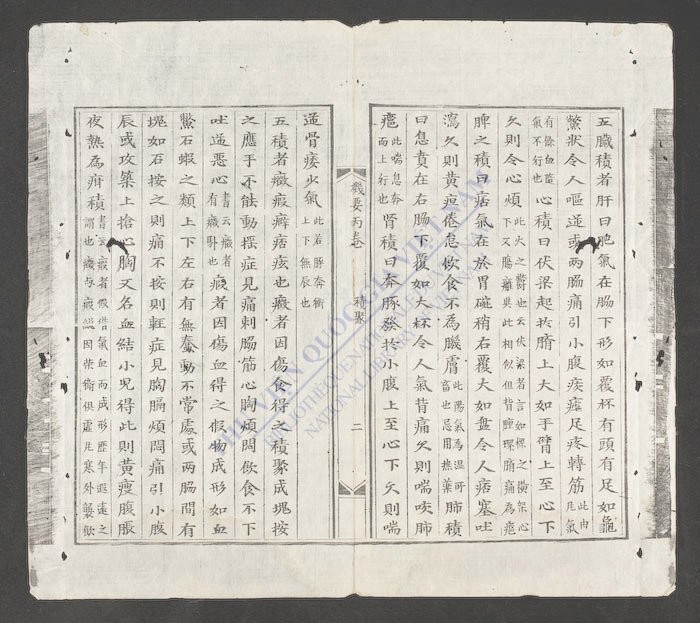 五臟積者肝曰肥氣在脇下形如覆杯有頭有足如龜
鱉狀令人嘔逆或两脇痛引小腹疾瘧足疼轉筋此由厇氣
有餘血澁氣不行也心積曰伏梁起於臍上大如手臂上至心下
久則令心煩
脾之積曰痞氣在於胃磪稍右覆大如盘令人痞塞吐
瀉久則黄疸倦怠飲食不為肌膚此陽氣為温可畜也忌用燕薬肺積
曰息賁在右脇下覆如大杯令人氣背痛久則喘咳肺
癰此喘息奔而上行也腎積曰奔豚發於小腹上至心下久則喘
逆骨痿少氣此若豚奔衝上下無辰也
五積者癥瘕癖痞痃也癥者因傷食得之積聚成塊按
之應手不能動摇症見痛刺脇筋心胸煩悶飲食不下
吐逆惡心書云癥者有癥騐也瘕者因傷血得之假物成形如血
鱉石蝦之類上下左右有無動不常處或两脇間有
塊如石按之則痛不按則輕症見胸膈煩悶痛引小腹
辰或攻築上搶心胸又名血結小児得此則黄瘦腹脹
夜熱為疳積書云瘕者假借氣血而成形歷年遐遠之謂也癥与瘕総因荣衛俱虚厇寒外襲飲
積聚
二
THƯ VIỆN QUỐC GIA VIỆT NAM
BIBLIOTHÈQUE NATIONALE DU VIETNAM
NATIONAL LIBRARY OF VIETNAM